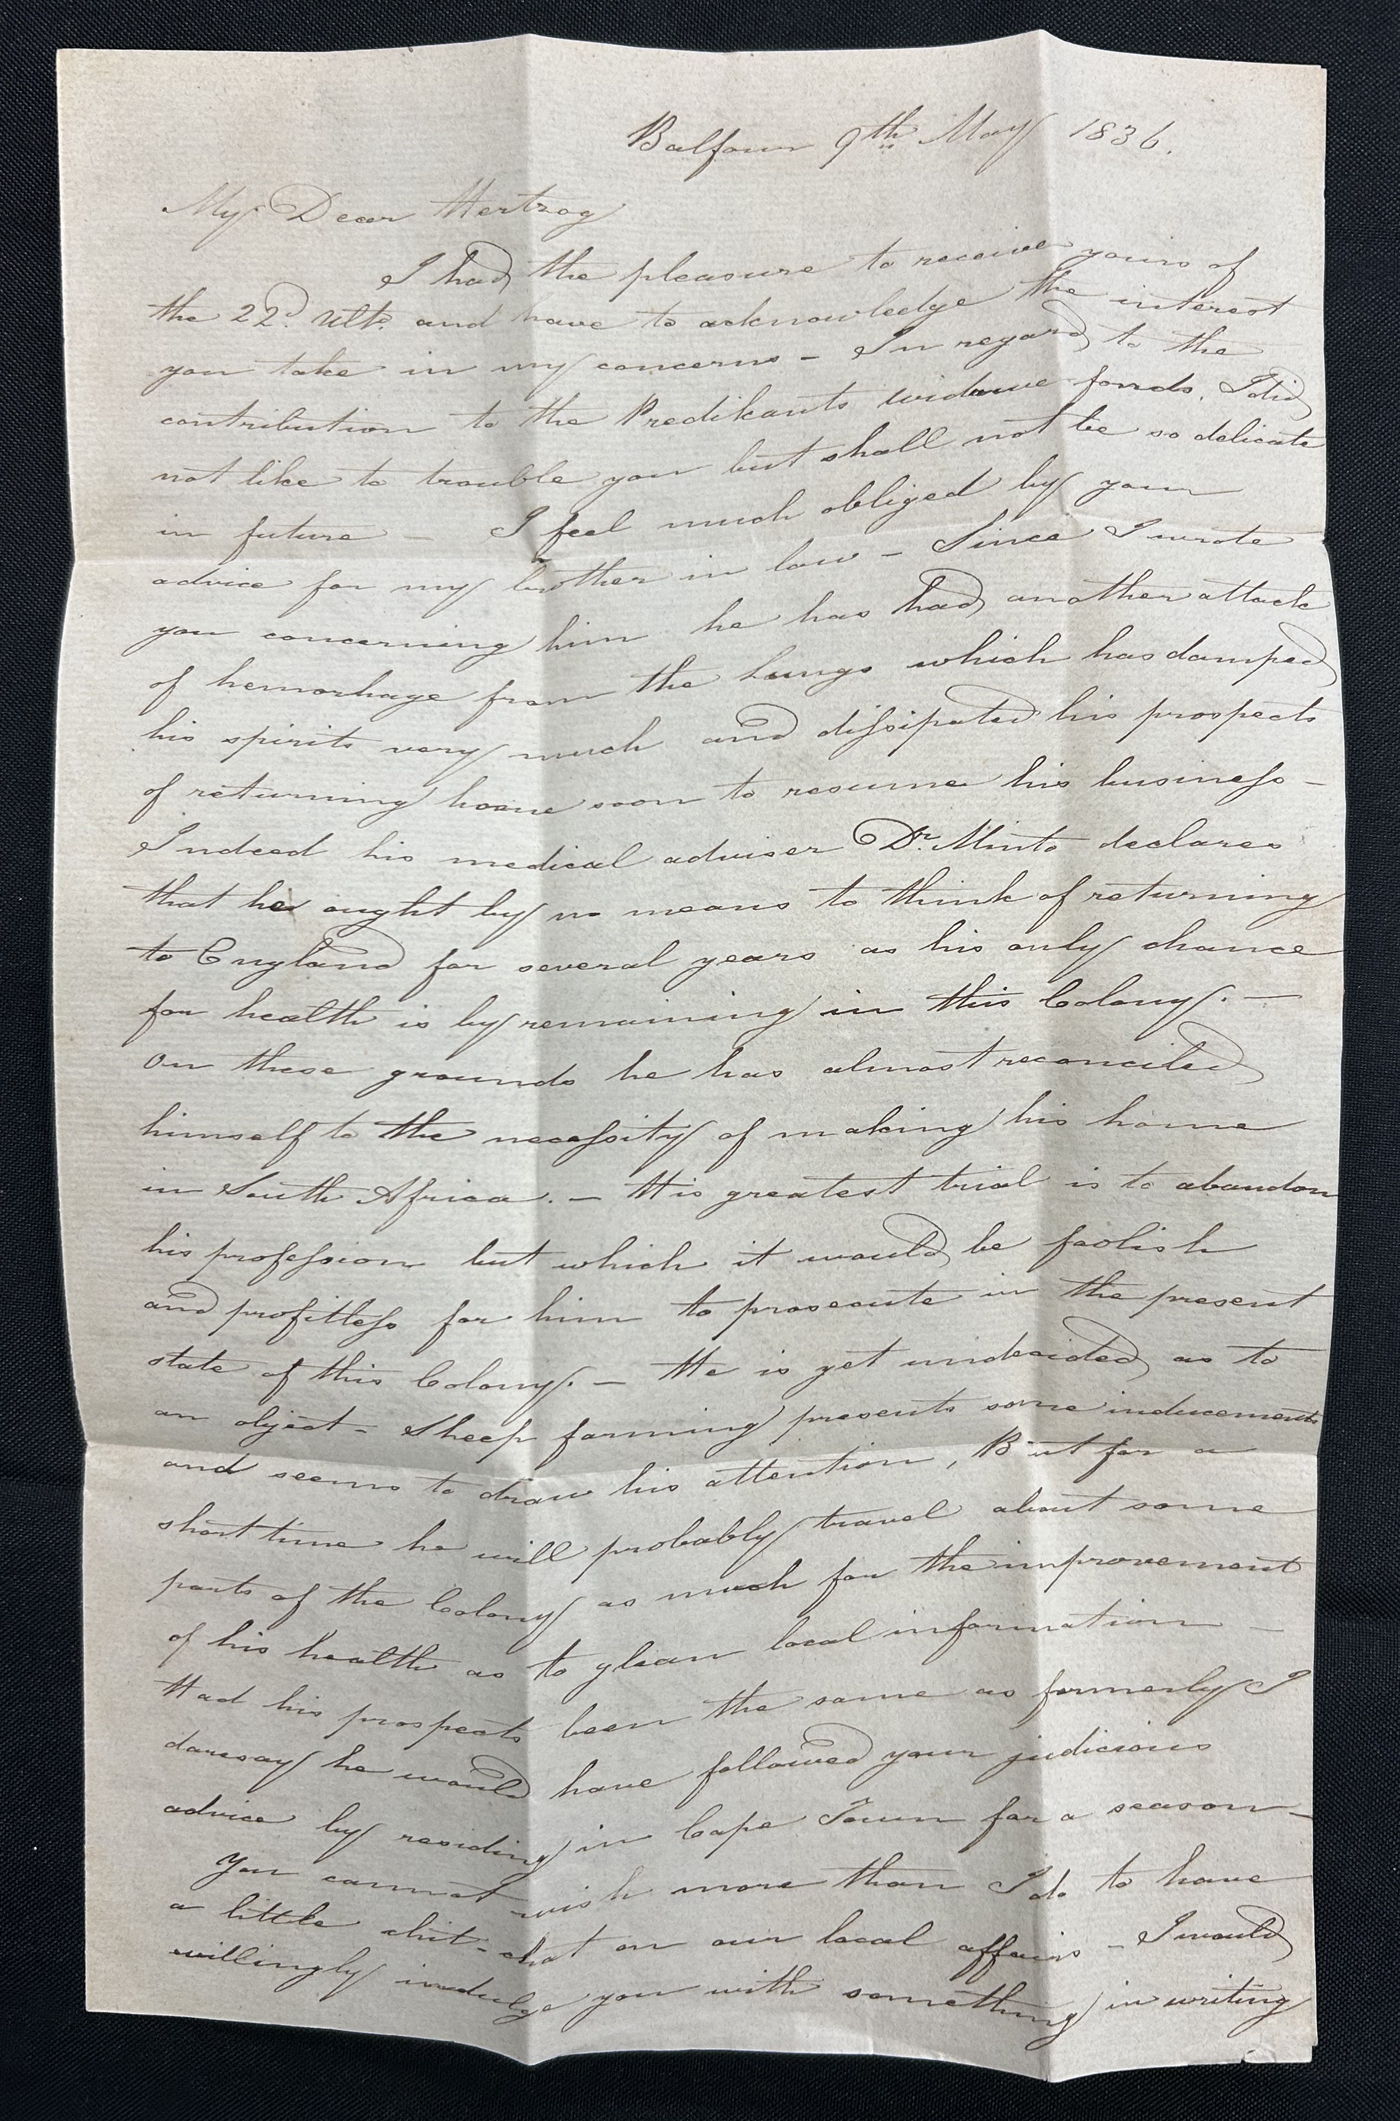 Balfour 9th May 1836.
My Dear Hertzog
I had the pleasure to receive yours of
the 22d. Ulto. and have to acknowledge the interest
you take in my concerns - In regard to the
contribution to the Predikants widows fonds, I did
not like to trouble you but shall not be so delicate
in future - I feel much obliged by your
advice for my brother in law - Since I wrote
you concerning him he has had another attack
of hemorhage from the Lungs which has damped
his spirits very much and dissipated his prospects
of returning home soon to resume his business -
Indeed his medical adviser Dr. Minto declares
that he ought by no means to think of returning
to England for several years as his only chance
for health is by remaining in this Colony. -
On these grounds he has almost reconciled
himself to the necessity of making his home
in South Africa. - His greatest trial is to abandon
his profession but which it would be foolish
and profitless for him to prosecute in the present
state of this Colony. - He is yet undecided as to
an object - Sheep farming presents some inducements
and seems to draw his attention, But for a
short time he will probably travel about some
parts of the Colony as much for the improvement
of his health as to glean local information -
Had his prospects been the same as formerly I
daresay he would have followed your judicious
advice by residing in Cape Town for a season -
You cannot wish more than I do to have
a little chit-chat on our local affairs - I would
willingly indulge you with something in writing